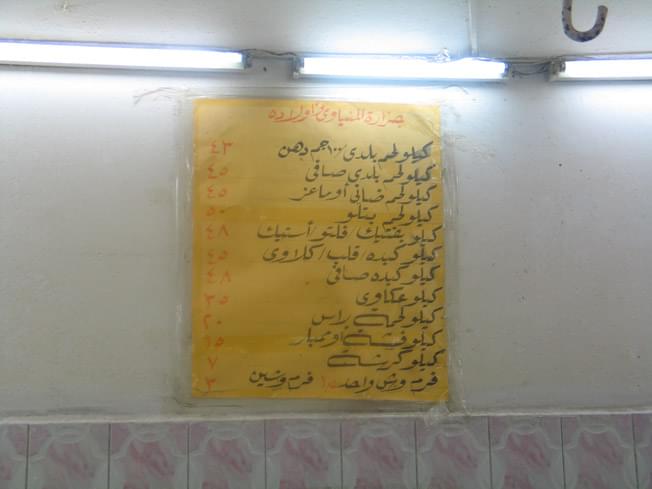 جزارة المنياوى وأولاده
كيلو لحم بلدى/١٠٠جم دهن ٤٣
كيلو لحم بلدى صافى ٤٥
كيلو لحم ضانى أو ماعز ٤٥
كيلو لحم بتلو ٥٠
كيلو بفتيك/فلتو/أستيك ٤٨
كيلو كبده/قلب/كلاوى ٤٥
كيلو كبده صافى ٤٨
كيلو عكاوى ٣٥
كيلو لحمة راس ٢٠
كيلو فشة أو ممبار ١٥
كيلو كرشة ٧
فرم وش واحد ١٫٥ فرم وشين ٣